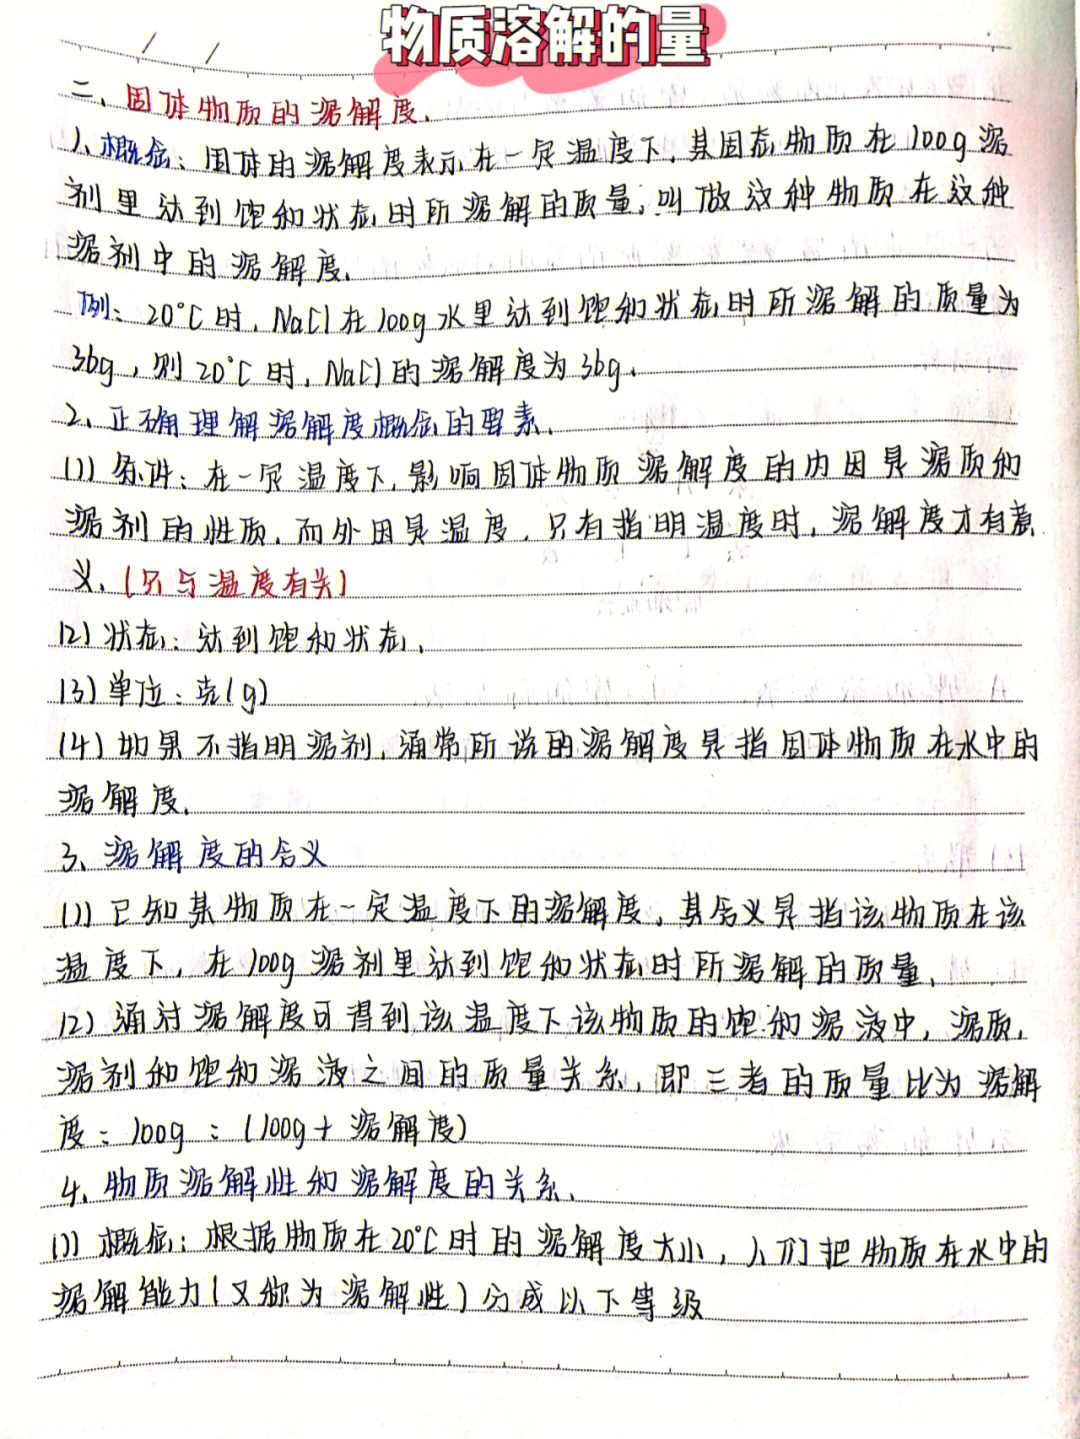 物质溶解的量
二、固体物质的溶解度.
1、概念：固体的溶解度表示在一定温度下，某固态物质在100g溶
剂里达到饱和状态时所溶解的质量，叫做这种物质在这种
溶剂中的溶解度.
例：20℃时，NaCl在100g水里达到饱和状态时所溶解的质量为
36g，则20℃时，NaCl的溶解度为36g.
2、正确理解溶解度概念的要素.
(1) 条件：在一定温度下，影响固体物质溶解度的内因是溶质和
溶剂的性质，而外因是温度，只有指明温度时，溶解度才有意
义.（只与温度有关）
(2) 状态：达到饱和状态.
(3) 单位：克(g)
(4) 如果不指明溶剂，通常所说的溶解度是指固体物质在水中的
溶解度.
3、溶解度的含义
(1) 已知某物质在一定温度下的溶解度，其含义是指该物质在该
温度下，在100g溶剂里达到饱和状态时所溶解的质量.
(2) 通过溶解度可得到该温度下该物质的饱和溶液中，溶质，
溶剂和饱和溶液之间的质量关系，即三者的质量比为溶解
度：100g：(100g+溶解度)
4、物质溶解性和溶解度的关系.
(1) 概念：根据物质在20℃时的溶解度大小，人们把物质在水中的
溶解能力（又称为溶解性）分成以下等级